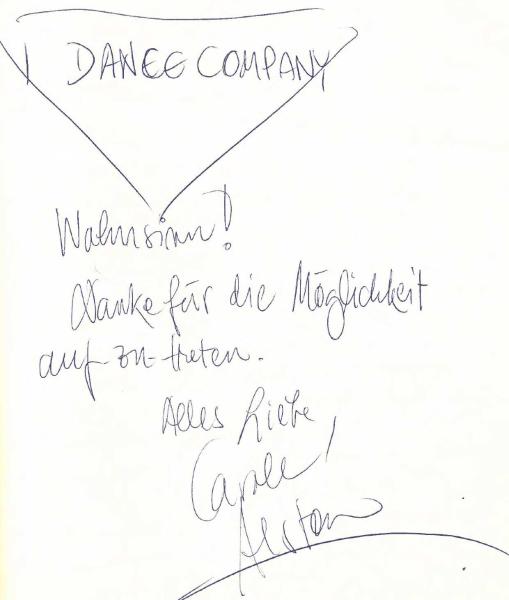 DANCE COMPANY
Wahnsinn!
Danke für die Möglichkeit
auf-zu-treten.
Alles Liebe,
Carole
Alston